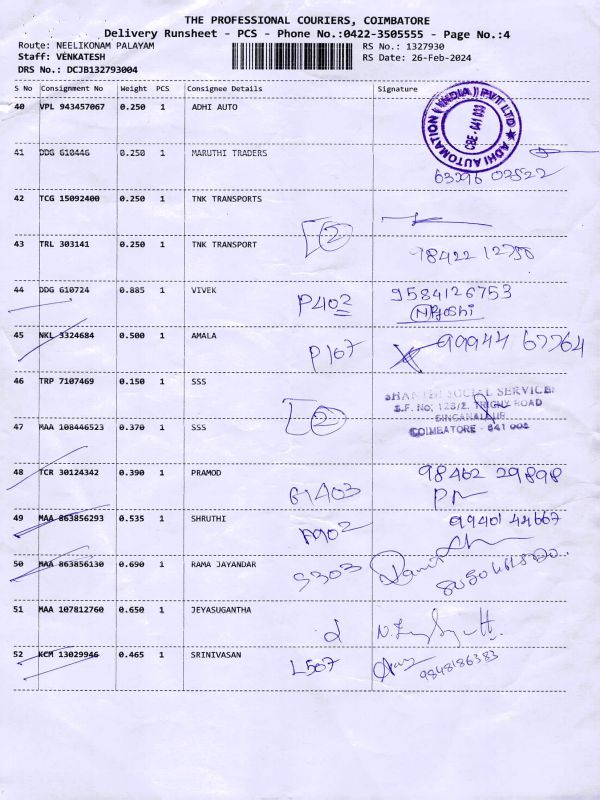 THE PROFESSIONAL COURIERS, COIMBATORE
Delivery Runsheet - PCS - Phone No.:0422-3505555 - Page No.:4
Route: NEELIKONAM PALAYAM
RS No.: 1327930
Staff: VENKATESH
RS Date: 26-Feb-2024
DRS No.: DCJB132793004
S No Consignment No Weight PCS Consignee Details Signature
40 VPL 943457067 0.250 1 ADHI AUTO
ADHI AUTOMATION (INDIA) PVT LTD
CBE - 641 033
41 DDG 610446 0.250 1 MARUTHI TRADERS
42 TCG 15092400 0.250 1 TNK TRANSPORTS
2
43 TRL 303141 0.250 1 TNK TRANSPORT
44 DDG 610724 0.885 1 VIVEK
P402 9584126753
45 NKL 3324684 0.500 1 AMALA
P107 99944 67764
46 TRP 7107469 0.150 1 SSS
SHANTHI SOCIAL SERVICE
S.F. NO: 128/2, TRICHY ROAD
2 SINGANALLUR
47 MAA 108446523 0.370 1 SSS
COIMBATORE - 641 005
48 TCR 30124342 0.390 1 PRAMOD
G1403 98462 29898
49 MAA 863856293 0.535 1 SHRUTHI
A902 99401 44667
50 MAA 863856130 0.690 1 RAMA JAYANDAR
S303
51 MAA 107812760 0.650 1 JEYASUGANTHA
52 KCM 13029946 0.465 1 SRINIVASAN
L507 9848186383